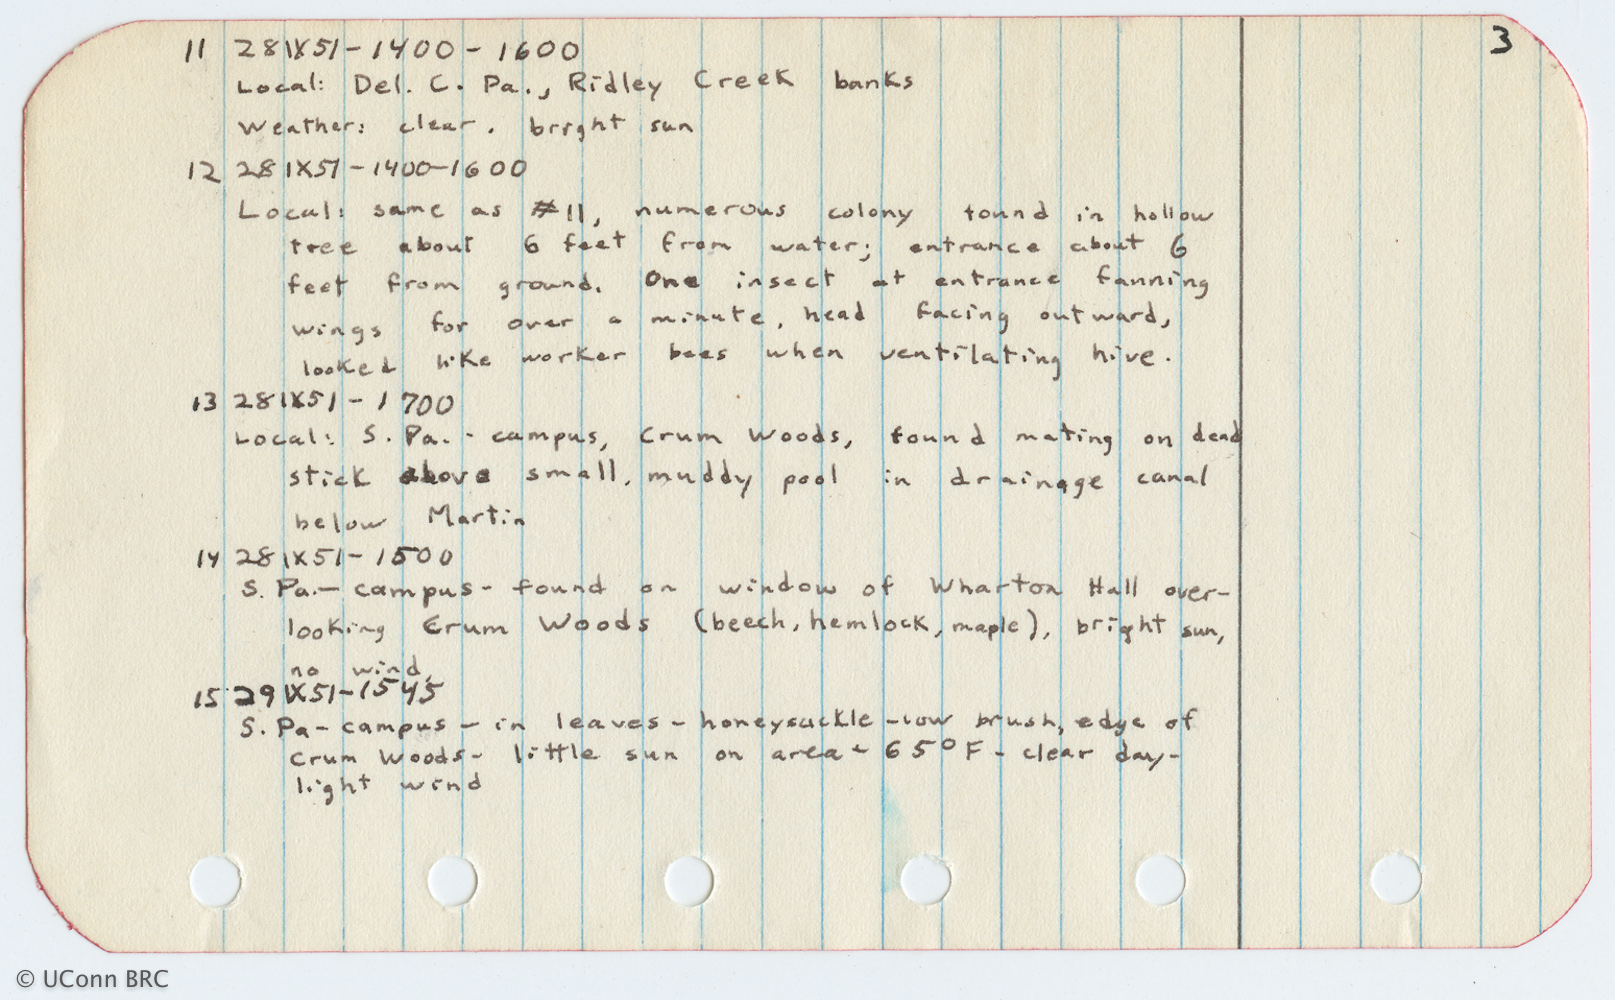 3
11 28IX51-1400-1600
Local: Del. C. Pa., Ridley Creek banks
Weather: clear. bright sun
12 28IX51-1400-1600
Local: same as #11, numerous colony found in hollow
tree about 6 feet from water; entrance about 6
feet from ground. One insect at entrance fanning
wings for over a minute, head facing outward,
looked like worker bees when ventilating hive.
13 28IX51-1700
Local: S. Pa. - campus, Crum Woods, found mating on dead
stick above small, muddy pool in drainage canal
below Martin
14 28IX51-1500
S. Pa.- campus- found on window of Wharton Hall over-
looking Crum Woods (beech, hemlock, maple), bright sun,
no wind.
15 29IX51-1545
S. Pa- campus - in leaves - honeysuckle - low brush, edge of
Crum Woods- little sun on area - 65°F - clear day-
light wind
© UConn BRC